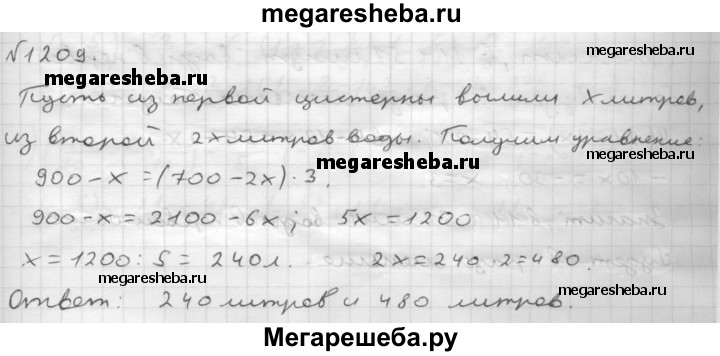 megaresheba.ru
№1209.
megaresheba.ru
megaresheba.ru
Пусть из первой цистерны вылили x литров,
из второй 2x литров воды. Получим уравнение:
megaresheba.ru
900 - x = (700 - 2x) · 3.
900 - x = 2100 - 6x; 5x = 1200
x = 1200 : 5 = 240 л. 2x = 240 · 2 = 480.
megaresheba.ru
megaresheba.ru
Ответ: 240 литров и 480 литров.
Мегарешеба.ру